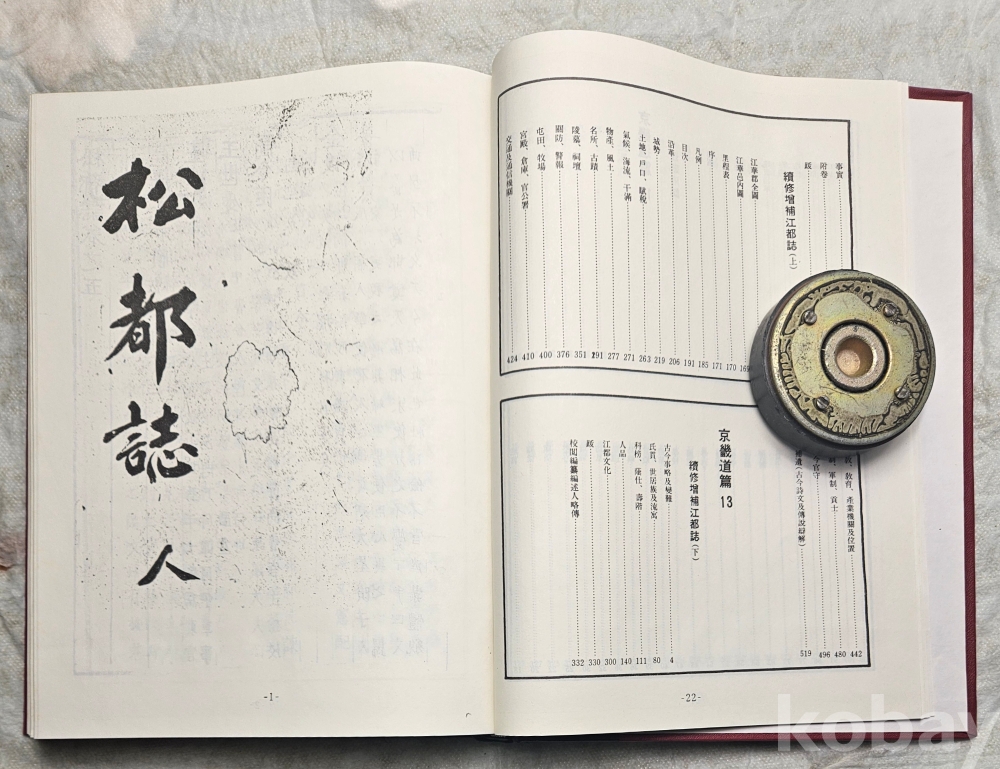 事實
附卷
跋
續修增補江都誌(上)
江華郡全圖
江華邑內圖 169
里程表 170
序 171
凡例 185
目次 191
沿革 206
城勢 219
土地、戶口、賦稅 263
氣候、海流、干滿 271
物產、風土 277
名所、古蹟 291
陵墓、祠壇 351
關防、警報 376
屯田、牧場 400
宮殿、倉庫、官公署 410
交通及通信機關 424
敎育、產業機關及位置 442
軍制、貢士 480
官守 496
(古今詩文及傳說辯解) 519
京畿道篇 13
續修增補江都誌(下)
古今事略及變難 4
氏貫、世居族及流寓 80
科榜、蔭仕、壽階 111
人品 140
江都文化 300
跋 330
校閱編纂編述人略傳 332
-22-
松都誌 人
-1-
kobay